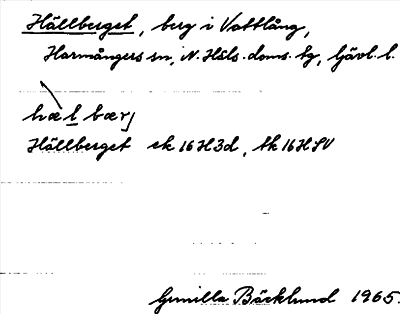 Hällberget, berg i Vattlång,
Harmångers sn, N. Häls. doms. tg, Gävl. l.
hælbærj
Hällberget ek 16H3d, tk 16H SV
Gunilla Bäcklund 1965.